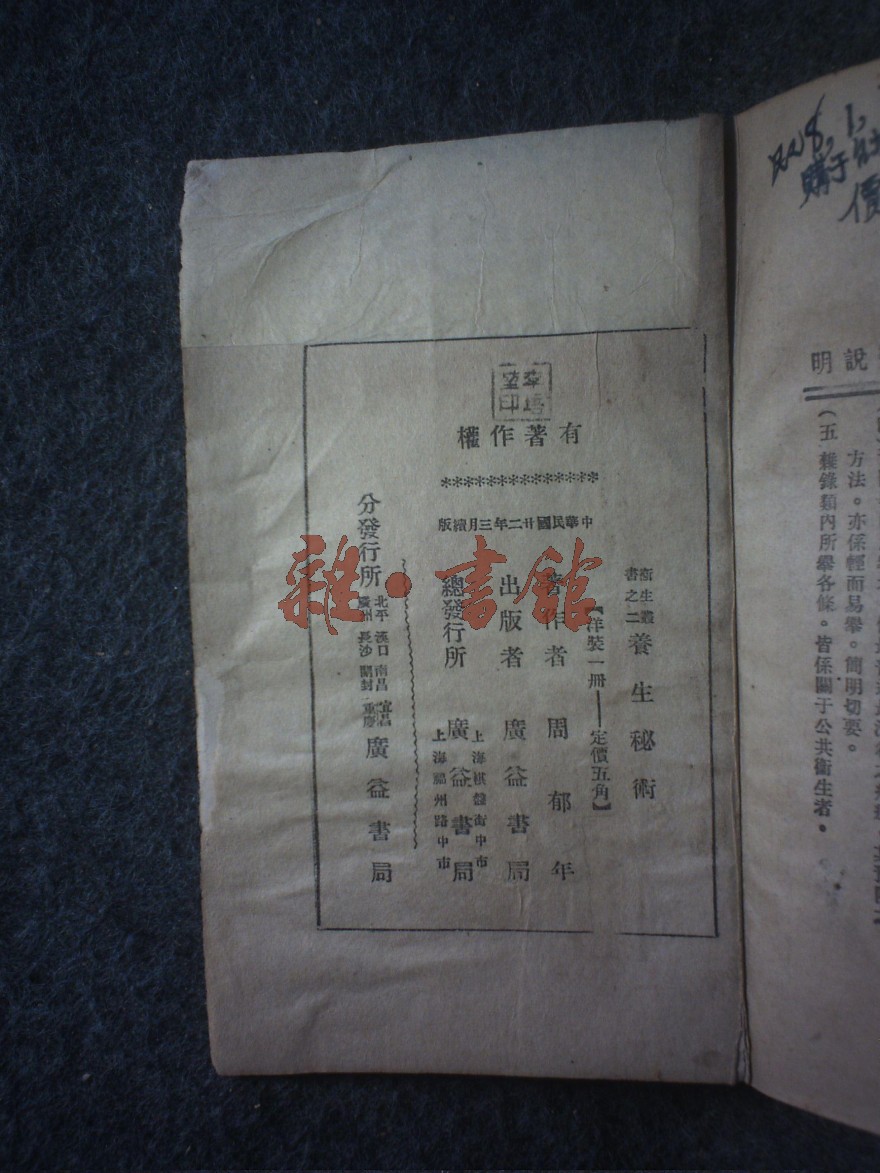 有著作權
中華民國廿二年三月續版
衛生叢書之二
養生秘術
【洋裝一冊——定價五角】
著作者 周郁年
出版者 廣益書局
總發行所 廣益書局
上海棋盤街中市
上海福州路中市
分發行所 北平 漢口 南昌 宜昌
廣州 長沙 開封 重慶
廣益書局
雜·書館
8,1,
購于
價
說明
方法。亦係輕而易舉。簡明切要。
(五 雜錄類內所舉各條。皆係關于公共衛生者。